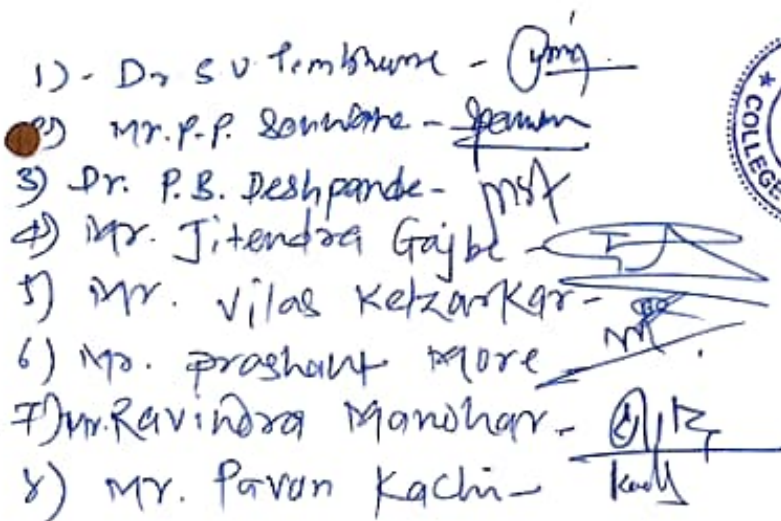 1) - Dr S V Tembhurne -
2) Mr. P.P. Sonwane -
3) Dr. P.B. Deshpande -
4) Mr. Jitendra Gajbe -
5) Mr. Vilas Kelzarkar -
6) Mr. prashant More
7) Mr. Ravindra Manohar -
8) Mr. Pavan Kachi -
COLLEGE